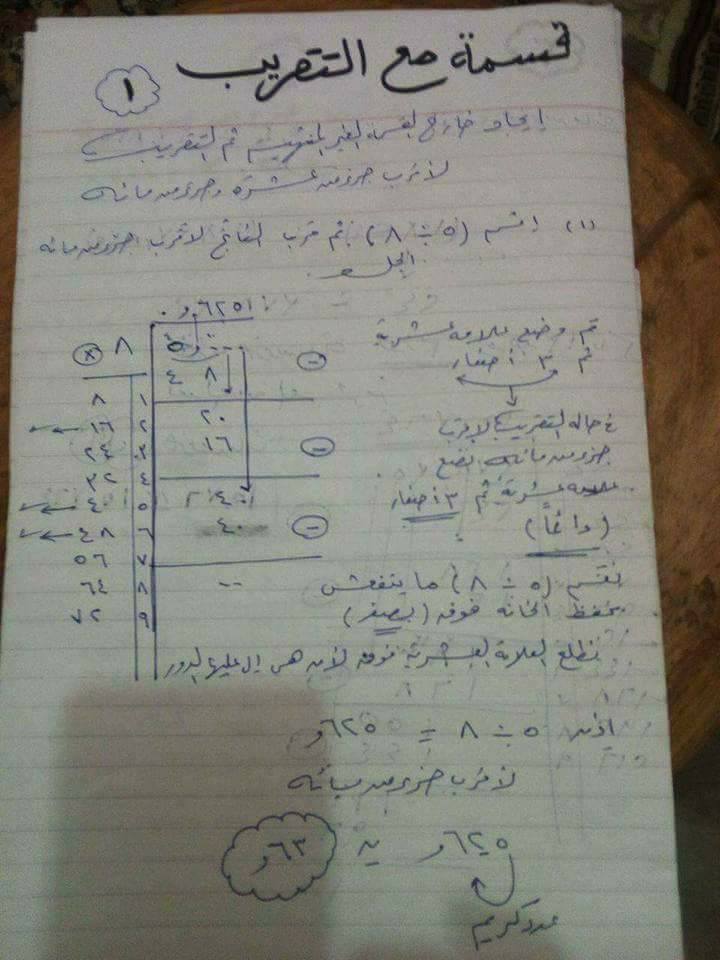 قسمة مع التقريب
١
إيجاد خارج القسمة الغير المنتهية ثم التقريب
لأقرب جزء من عشرة وجزء من مائة
(١) اقسم (٥ ÷ ٨) ثم قرب الناتج لأقرب جزء من مائة
الحل
٦٢٥و٠
٨
٤ ٨
٢٠
١٦
٤٠
٤٠
--
× ٨
١ ٨
٢ ١٦
٣ ٢٤
٤ ٣٢
٥ ٤٠
٦ ٤٨
٧ ٥٦
٨ ٦٤
٩ ٧٢
تم وضع علامة عشرية
ثم ٣ أصفار
في حالة التقريب لأقرب
جزء من مائة نضع
علامة عشرية ثم ٣ أصفار
(دائماً)
نقسم (٥ ÷ ٨) ما ينفعش
بحفظ الخانة فوقه (بصفر)
نطلع العلامة العشرية فوقه لأنه هي إلى عليها الدور
إذن ٥ ÷ ٨ = ٦٢٥و
لأقرب جزء من مائة
٦٢٥و ≃ ٦٣و
عدد كريم